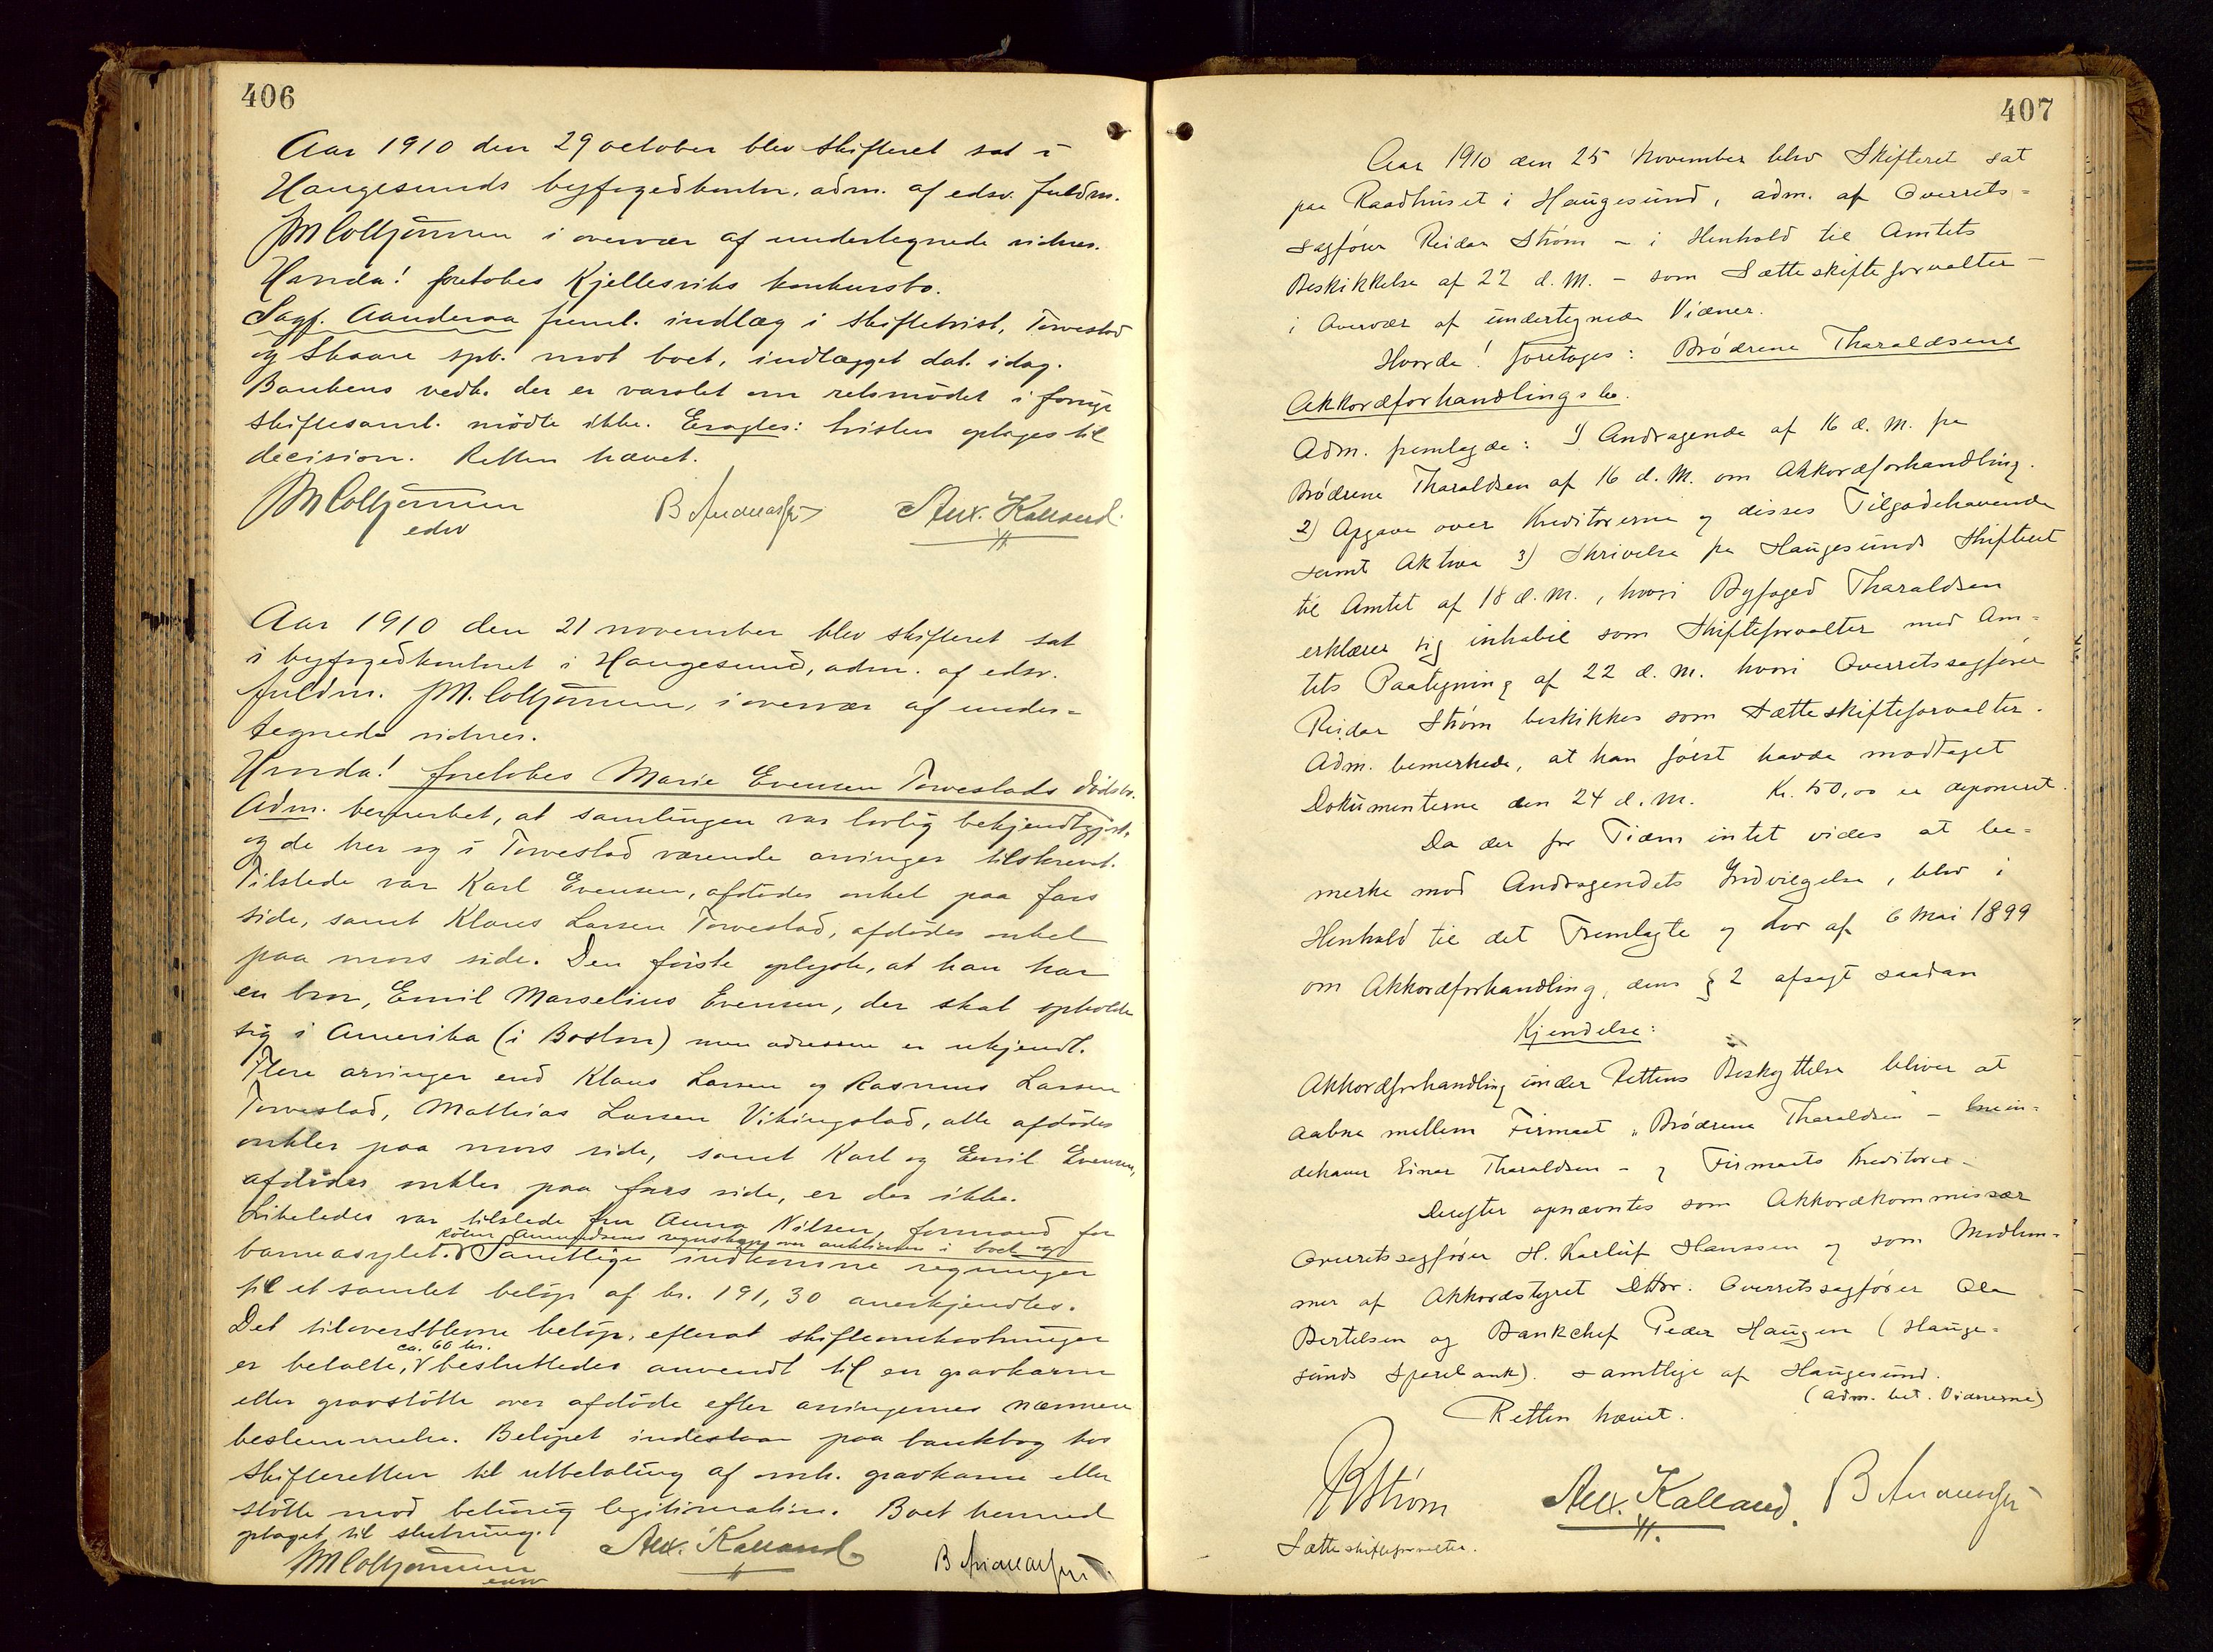 406
Aar 1910 den 29 october blev skifteret sat i
Haugesunds byfogedkontor, adm. af edsv. fuldm.
i overvær af undertegnede vidner.
Hvorda! foretokes Kjellesviks konkursbo.
Sagf. Aanderaa freml. indlæg i skiftetvist, Torvestad
og Skaare spb. mot boet, indlægget dat. idag.
Bankens vedk. der er varslet om retsmødet i forrige
skiftesaml. mødte ikke. Eragtes: tvisten optages til
decision. Retten hævet.
edsv
Alex. Kalland
Aar 1910 den 21 november blev skifteret sat
i byfogedkontoret i Haugesund, adm. af edsv.
fuldm. i overvær af under-
tegnede vidner.
Hvorda! foretokes Marie Evensen Torvestads dødsbo.
Adm. bemerket, at samlingen var lovlig bekjendtgjort,
og de her og i Torvestad værende arvinger tilskrevet.
Tilstede var Karl Evensen, afdødes onkel paa fars
side, samt Klaus Larsen Torvestad, afdødes onkel
paa mors side. Den første oplyste, at han har
en bror, Emil Marselius Evensen, der skal opholde
sig i Amerika (i Boston) men adressen er ukjendt.
Flere arvinger end Klaus Larsen og Rasmus Larsen
Torvestad, Mathias Larsen Vikingstad, alle afdødes
onkler paa mors side, samt Karl og Emil Evensen,
afdødes onkler paa fars side, er der ikke.
Likeledes var tilstede fru Anna Nilsen, formand for
Amundsens regnskap over auktionen i boet og
barneasylet. Samtlige indkomne regninger
til et samlet beløp af kr. 191,30 anerkjendtes.
Det tiloversblevne beløp, efterat skifteomkostninger
ca. 60 kr.
er betalte, besluttedes anvendt til en gravkarm
eller gravstøtte over afdøde efter arvingernes nærmere
bestemmelse. Beløpet indestaar paa bankbog hos
skifteretten til utbetaling af omh. gravkarm eller
støtte mod behørig legitimation. Boet hermed
optaget til slutning.
Alex. Kalland
edsv
407
Aar 1910 den 25 November blev Skifteret sat
paa Raadhuset i Haugesund, adm. af Overrets-
sagfører Reidar Strøm – i Henhold til Amtets
Beskikkelse af 22 d. M. – som Sætteskifteforvalter –
i Overvær af undertegnede Vidner.
Hvorda! foretoges: Brødrene Tharaldsens
Akkordforhandlingsbo.
Adm. fremlagde: 1) Andragende af 16 d. M. fra
Brødrene Tharaldsen af 16 d. M. om Akkordforhandling.
2) Opgave over Kreditorerne og disses Tilgodehavende
samt Aktiva 3) Skrivelse fra Haugesunds Skifteret
til Amtet af 18 d. M., hvori Byfoged Tharaldsen
erklærer sig inhabil som Skifteforvalter med Am-
tets Paategning af 22 d. M. hvori Overretssagfører
Reidar Strøm beskikkes som Sætteskifteforvalter.
Adm. bemerkede, at han først havde modtaget
Dokumenterne den 24 d. M. Kr. 50,00 er deponeret.
Da der for Tiden intet vides at be-
merke mod Andragendets Indvilgelse, blev i
Henhold til det Fremlagte og Lov af 6 Mai 1899
om Akkordforhandling, dens § 2 afsagt saadan
Kjendelse:
Akkordforhandling under Rettens Beskyttelse bliver at
aabne mellem Firmaet „Brødrene Tharaldsen" – Enein-
dehaver Einar Tharaldsen – og Firmaets Kreditorer –
Derefter opnævntes som Akkordkommissær
Overretssagfører H. Karluf Hanssen og som Medlem-
mer af Akkordstyret DHrr. Overretssagfører Ola
Bertelsen og Bankchef Peder Haugen (Hauge-
sunds Sparebank). samtlige af Haugesund.
(adm. bet. Vidnerne)
Retten hævet.
RStrøm
Alex. Kalland.
Sætteskifteforvalter.